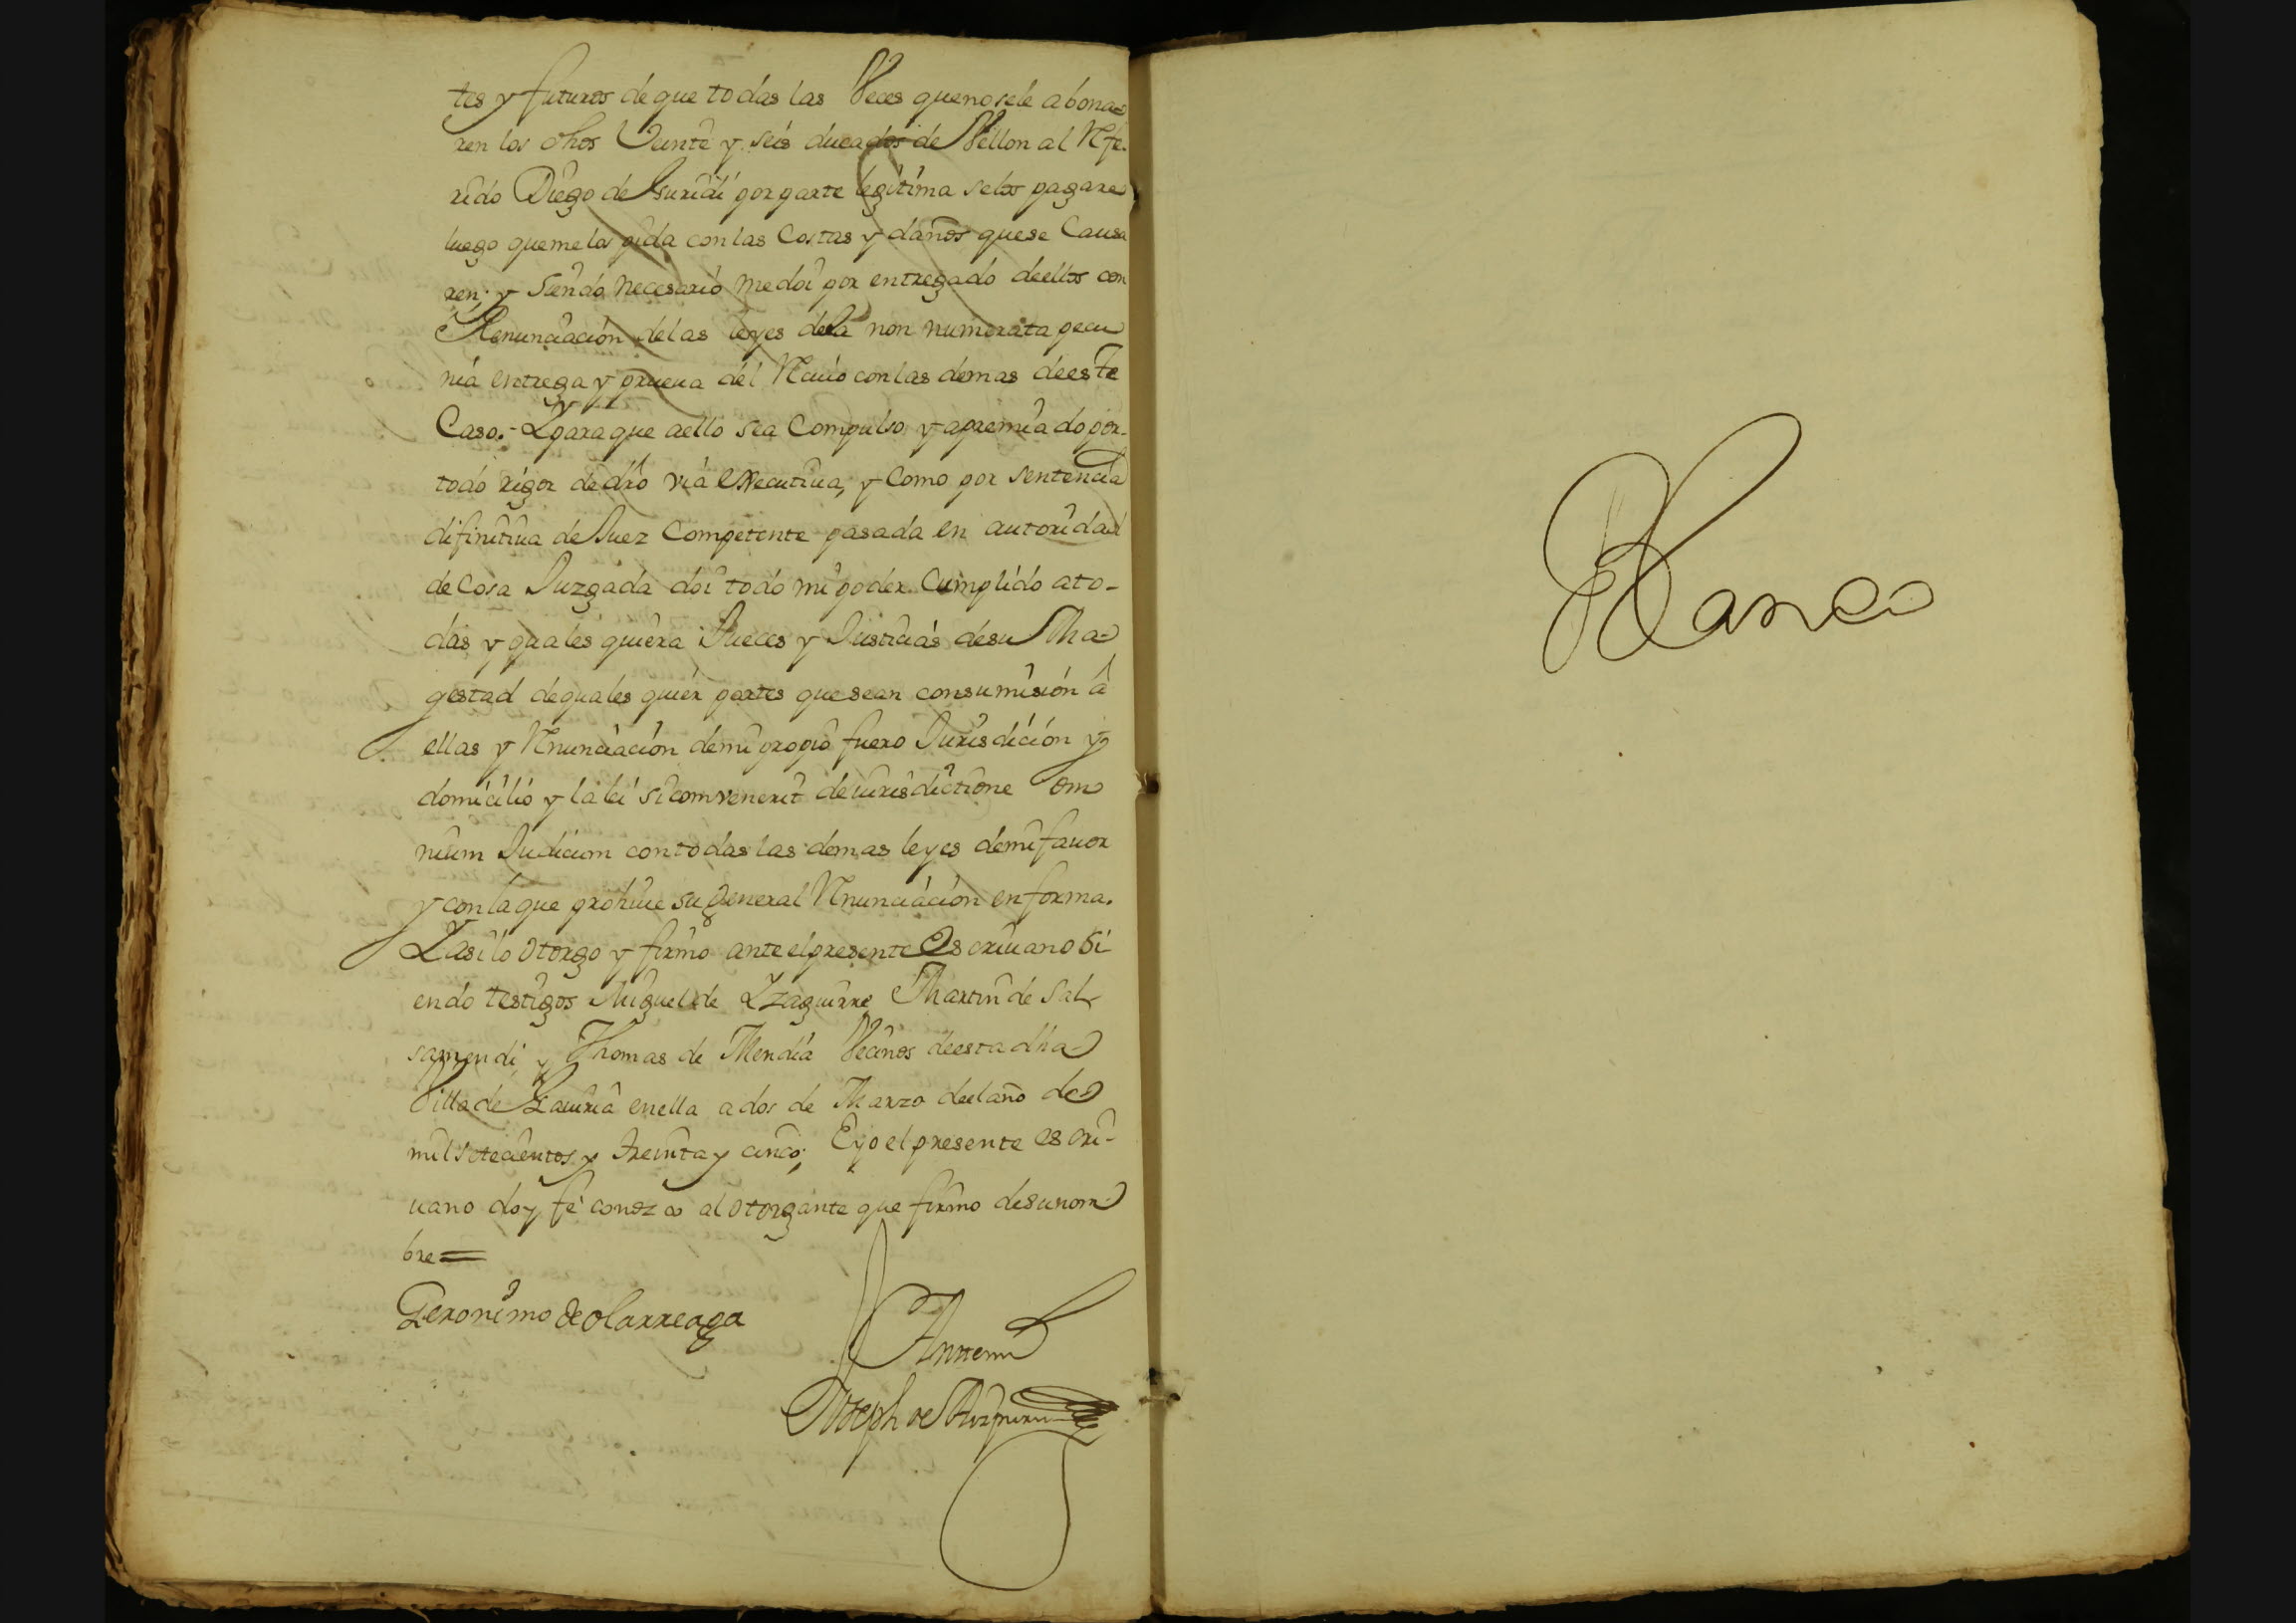 tes y futuros de que todas las Veces que no se le abona-
ren los dhos Veinte y seis ducados de Vellon al Refe-
rido Diego de Isuridi por parte legitima se los pagare
luego que me los pida con las Costas y daños que se Causa
ren; y siendo necesario me doi por entregado de ellos con
Renunciación de las leyes de la non numerata pecu
nia entrega y prueua del Reciuo con las demas de este
Caso.- Y para que a ello sea Compulso y apremiado por-
todo rigor de dro via executiua, y Como por sentencia
difinitiua de Juez Competente pasada en autoridad
de Cosa Juzgada doi todo mi poder Cumplido a to-
das y quales quiera Jueces y Justicias de su Ma-
gestad de quales quier partes que sean con sumisión â
ellas y Renunciación de mi propio fuero Jurisdición y
domicilio y la lei si comvenerit de iurisdictione om
nium Judicum con todas las demas leyes de mi fauor
y con la que prohiue su General Renunciación en forma.
Y asi lo otorgo y firmo ante el presente Escriuano Si
endo testigos Miguel de Yzaguirre Martin de Sal-
samendi y Thomas de Mendia Vecinos de esta dha
Villa de Gauiria en ella a dos de Marzo de el año de
mil setecientos y treinta y cinco; E yo el presente escri-
uano doy fé conozco al otorgante que firmo de su nom-
bre=
Geronimo de olarreaga
Ante mi
Joseph de
Blanco